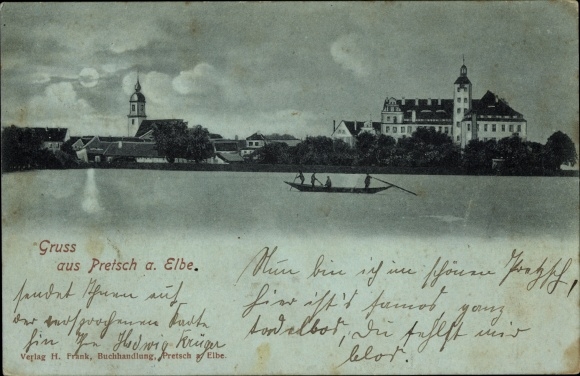 Gruss
aus Pretsch a. Elbe.
sendet Ihnen auf
der versprochenen Karte
hin Ihre Hedwig Krüger
Nun bin ich im schönen Pretzsch,
hier ist's famos ganz
tadellos, Du fehlst mir
blos.
Verlag H. Frank, Buchhandlung, Pretsch a. Elbe.